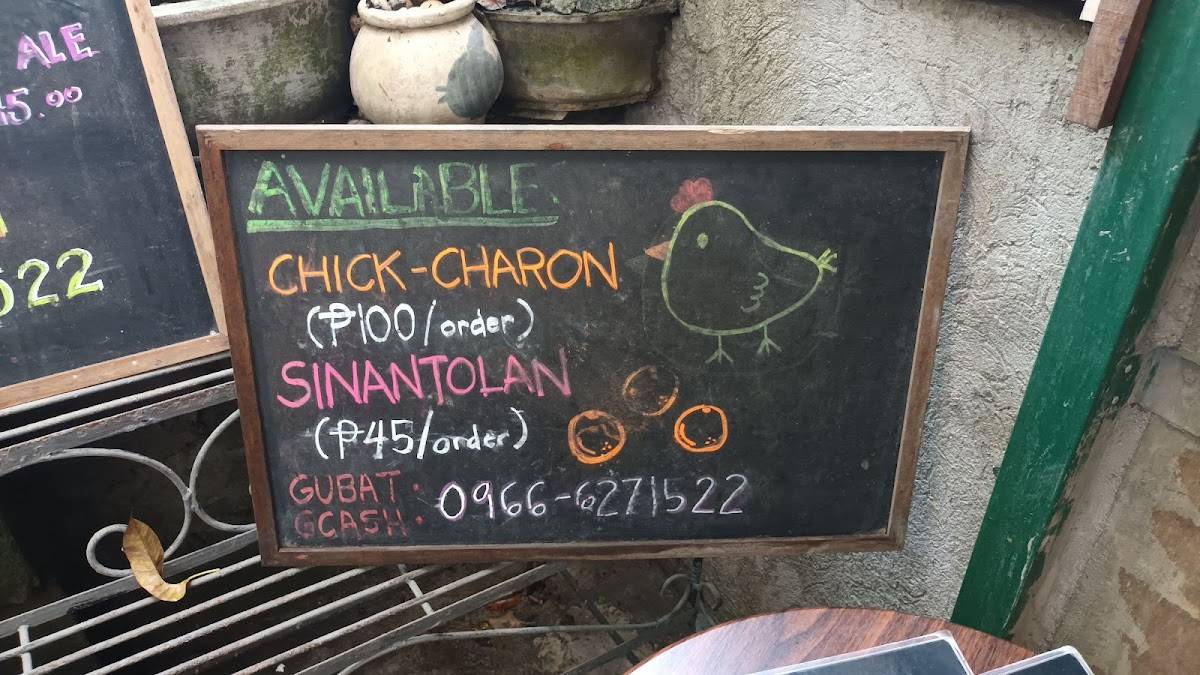 ALE
15.00
522
AVAILABLE
CHICK-CHARON
(₱100/order)
SINANTOLAN
(₱45/order)
GUBAT
GCASH:
0966-6271522